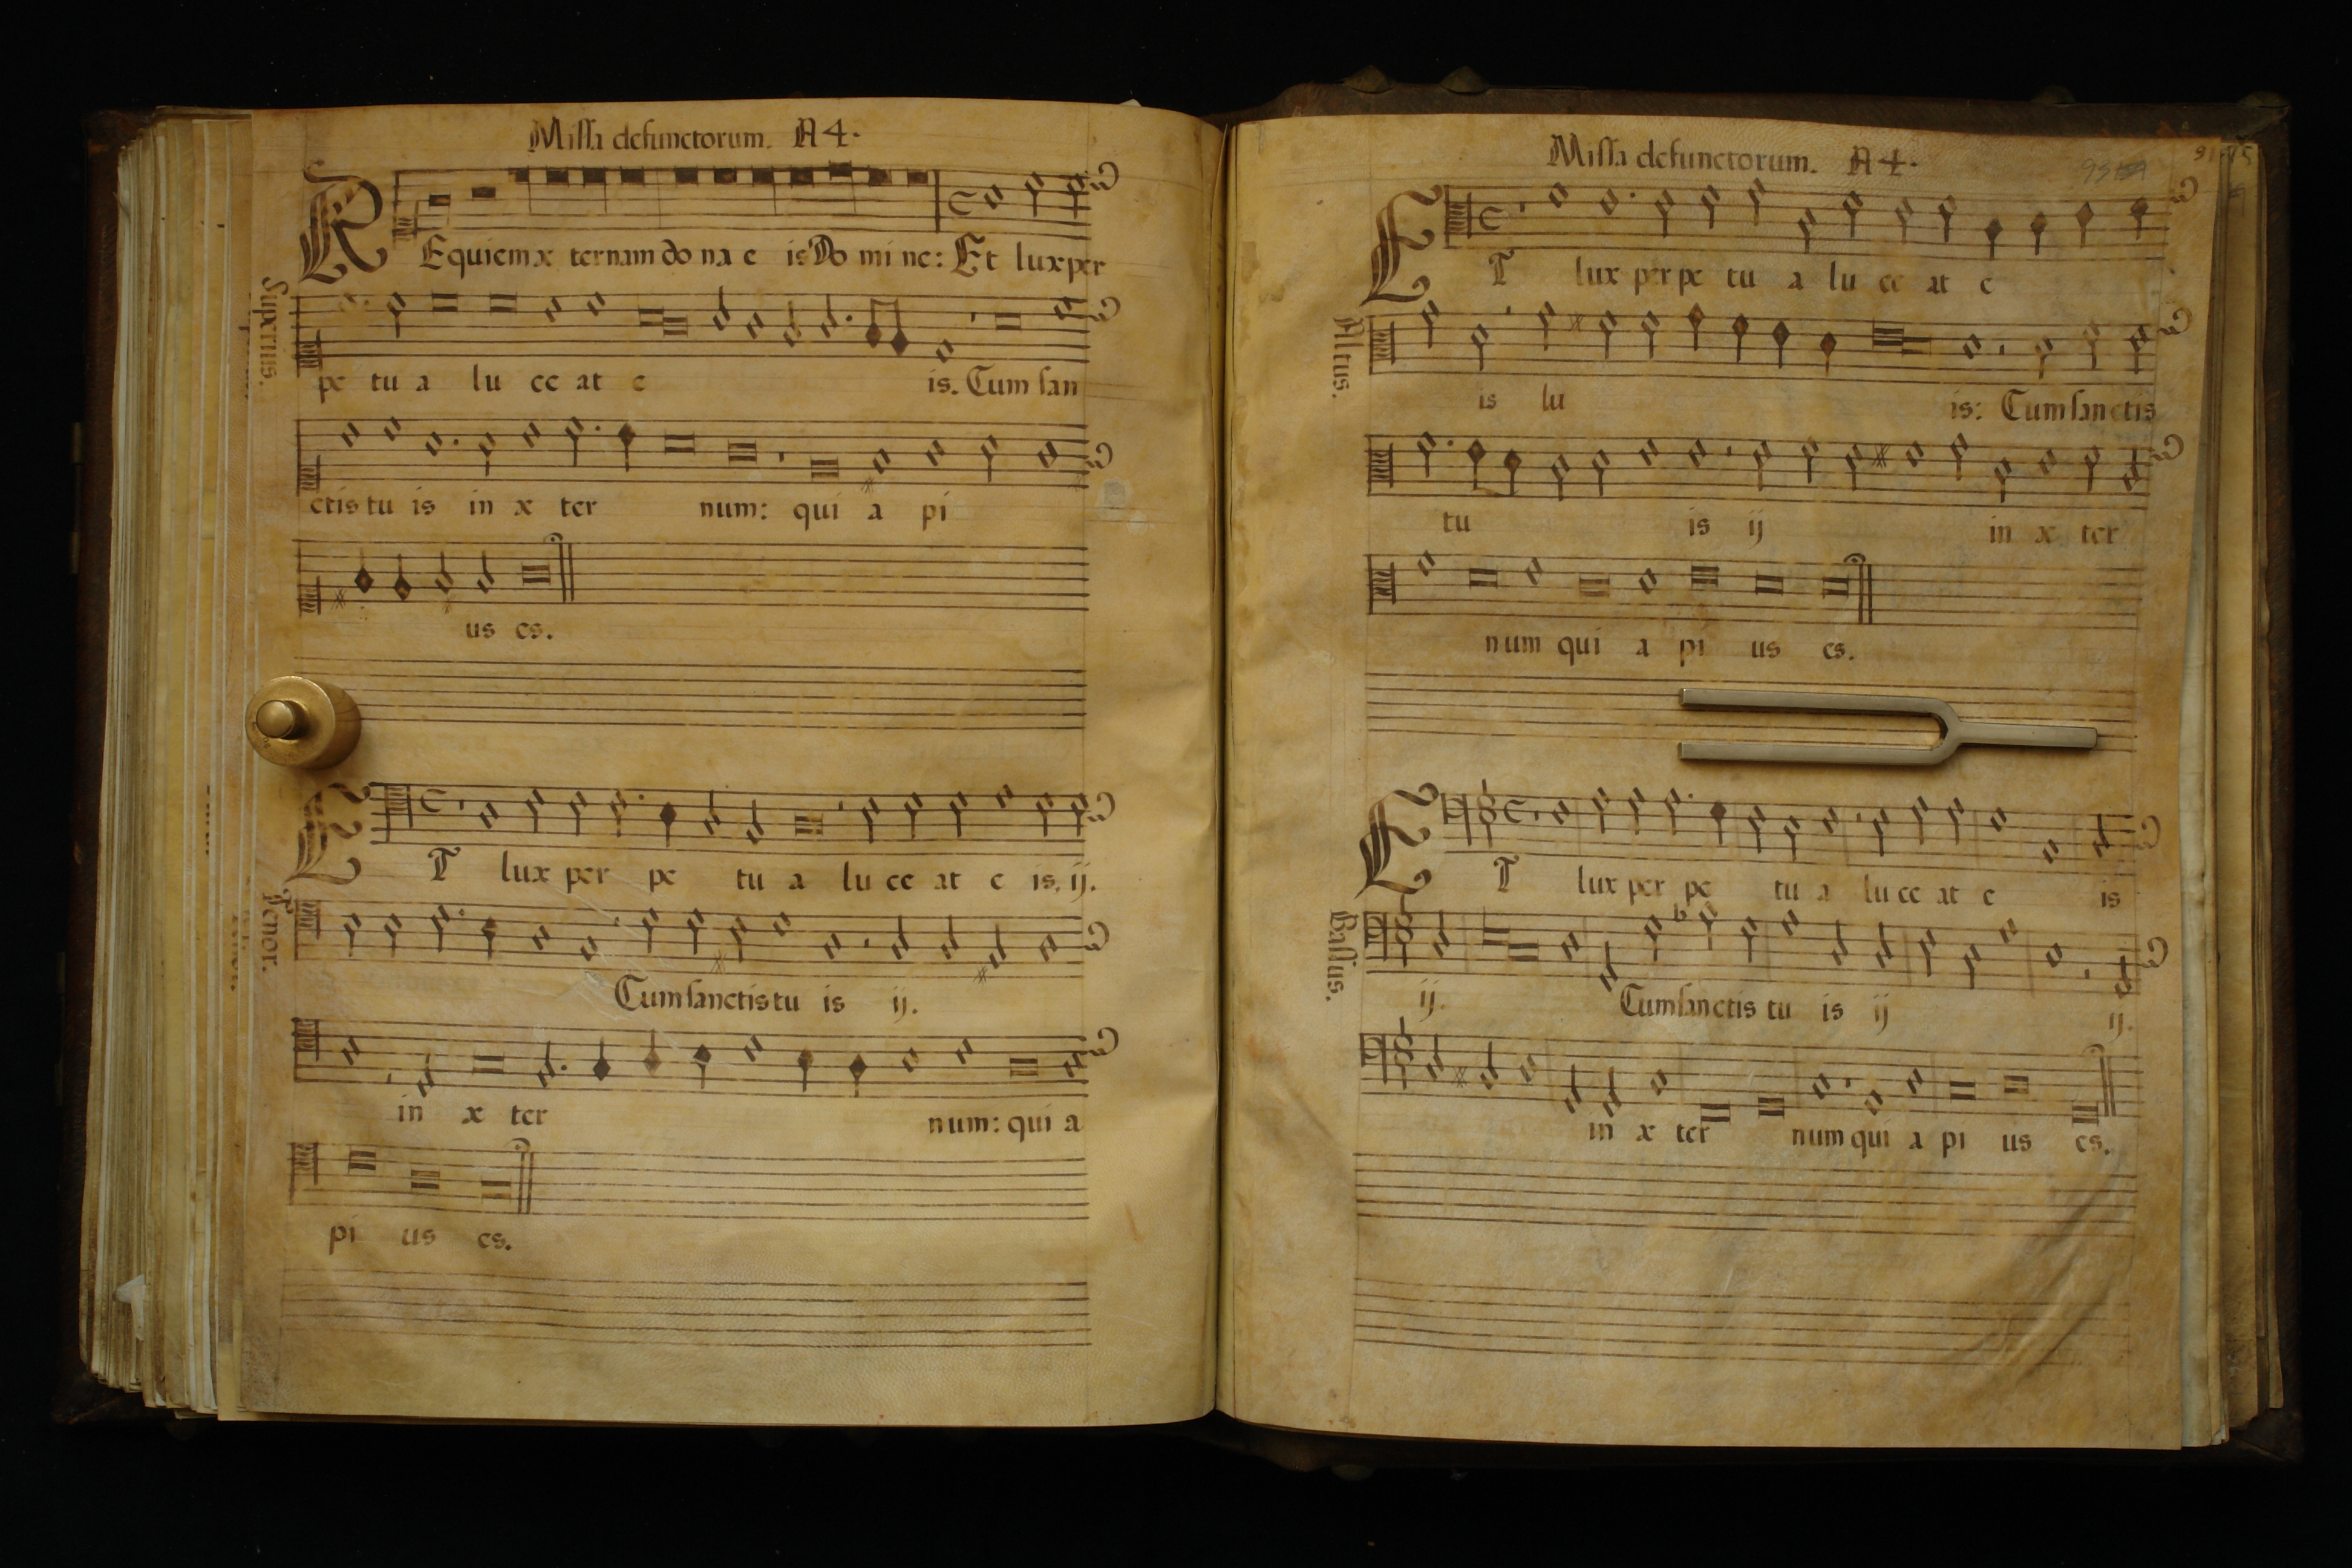 Missa defunctorum. A 4.
REquiem æ ternam do na e is Do mi ne: Et lux per
Superius.
pe tu a lu ce at e is. Cum san
ctis tu is in æ ter num: qui a pi
us es.
ET lux per pe tu a lu ce at e is. ij.
Tenor.
Cum sanctis tu is ij.
in æ ter num: qui a
pi us es.
Missa defunctorum. A 4.
ET lux per pe tu a lu ce at e
Altus.
is lu is: Cum sanctis
tu is ij in æ ter
num qui a pi us es.
ET lux per pe tu a lu ce at e is
Bassus.
ij. Cum sanctis tu is ij ij.
in æ ter num qui a pi us es.